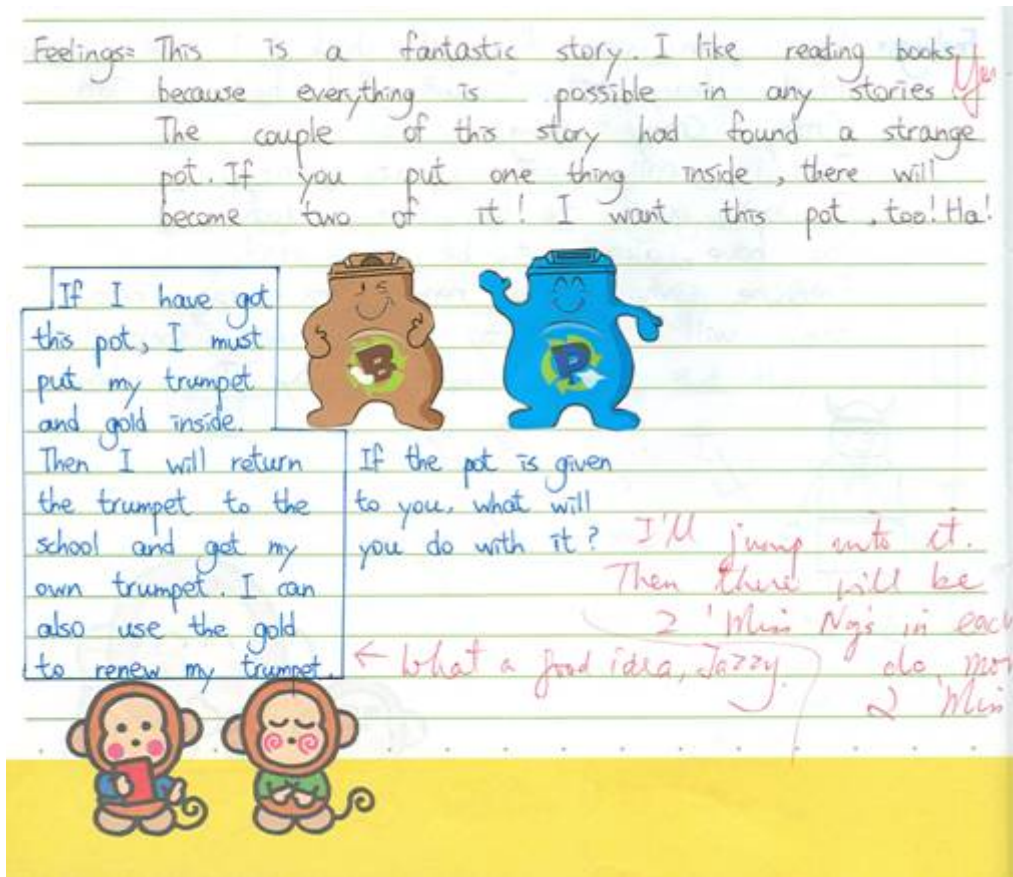 Feelings= This is a fantastic story. I like reading books,
because everything is possible in any stories.
Yes
The couple of this story had found a strange
pot. If you put one thing inside, there will
become two of it! I want this pot, too! Ha!
If I have got
this pot, I must
put my trumpet
and gold inside.
Then I will return
the trumpet to the
school and got my
own trumpet. I can
also use the gold
to renew my trumpet.
B
P
If the pot is given
to you, what will
you do with it?
I'll jump into it.
Then there will be
2 'Miss Ng's in each
← What a good idea, Jazzy.
do, mor
2 'Miss